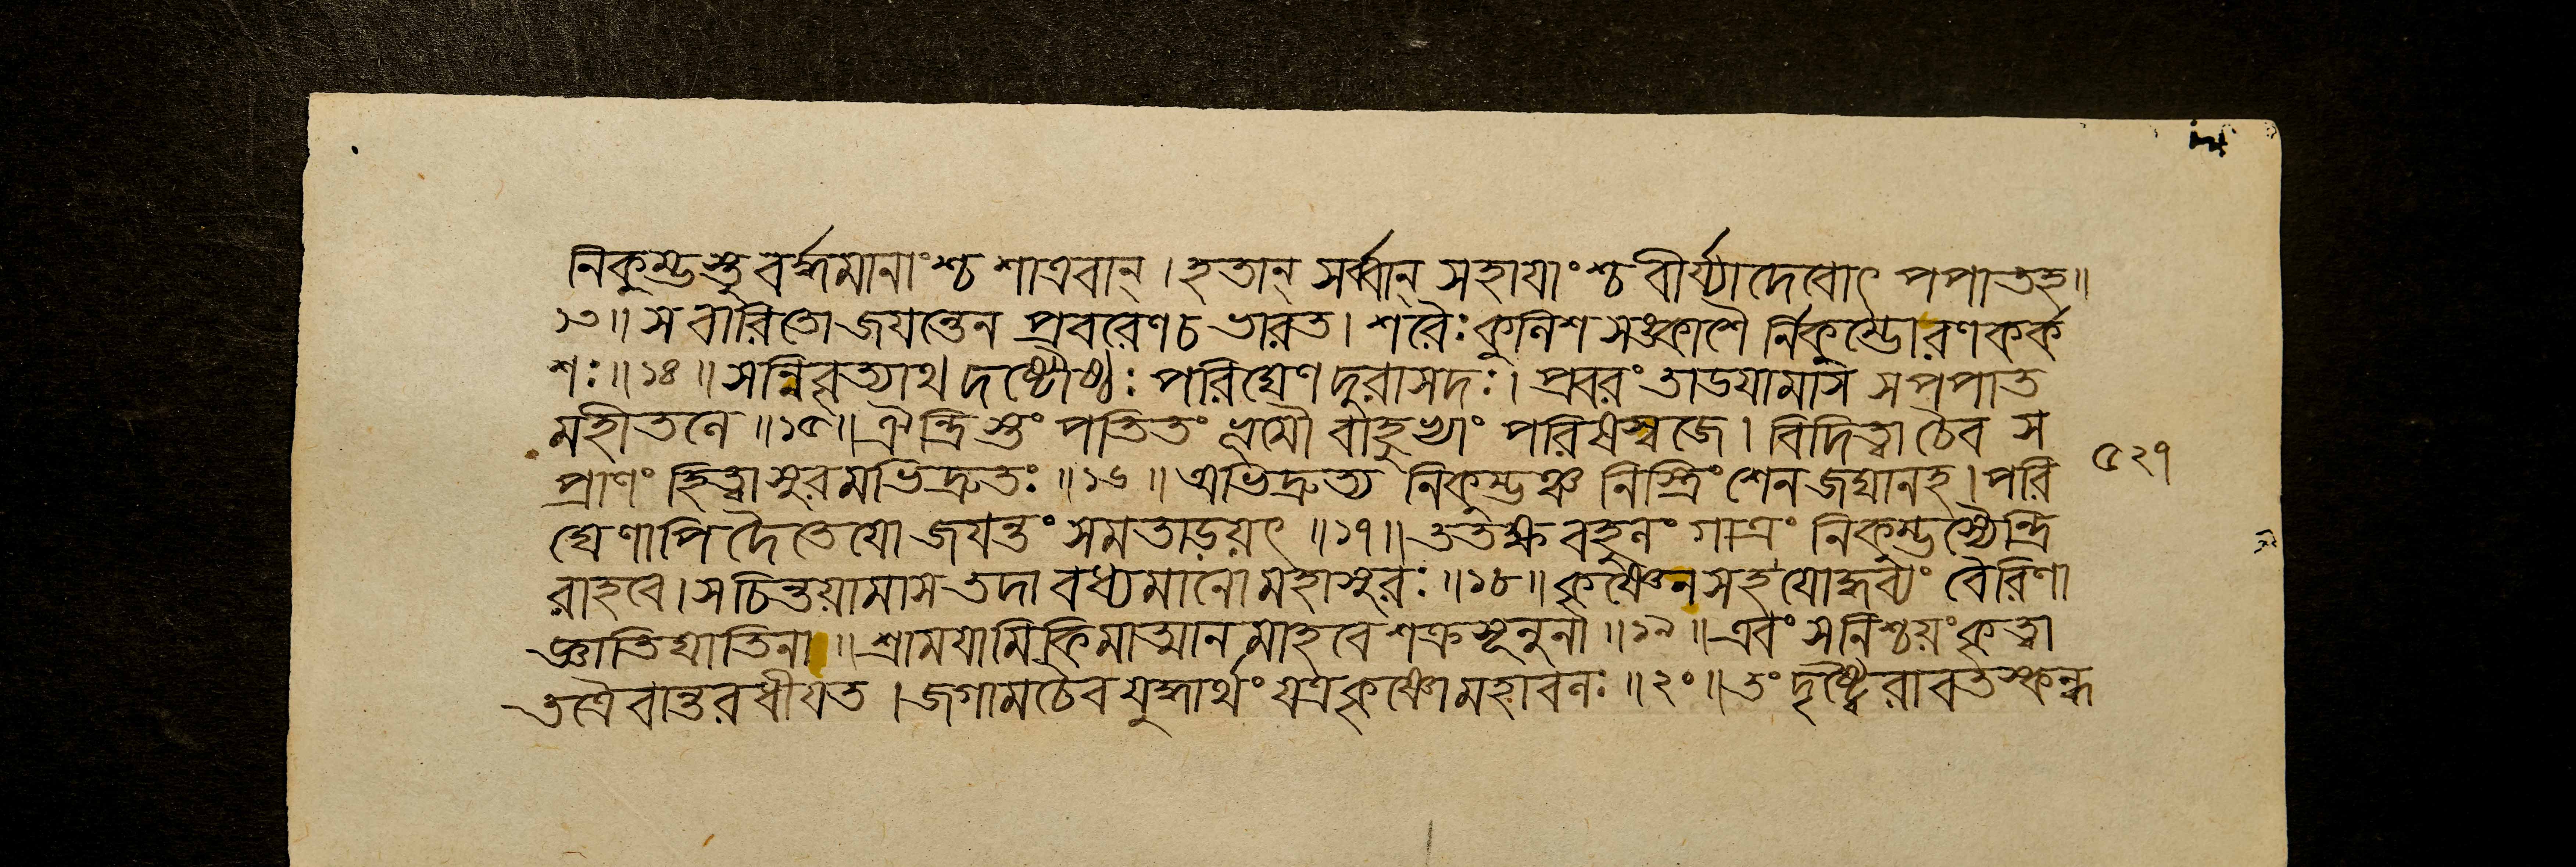 নিকুম্ভস্তু বর্দ্ধমানাংশ্চ শাত্রবান্ । হতান্ সর্ব্বান্ সহাযাংশ্চ বীর্য্যাদেবোৎ পপাতহ॥
১৩॥ স বারিতো জযন্তেন প্রবরেণ চ ভারত। শরৈঃ কুলিশ সঙ্কাশৈ র্নিকুম্ভোরণ কর্ক
শঃ॥১৪॥ সন্নিবৃত্যাথ দষ্টৌষ্ঠঃ পরিঘেণ দুরাসদঃ। প্রবরং তাডযামাস সপপাত
মহীতলে ॥১৫॥ ঐন্দ্রি স্তং পতিতং ভূমৌ বাহুভ্যাং পরিষস্বজে । বিদিত্বা চৈব স
প্রাণং হিত্বাসুরমভিদ্রুতঃ ॥১৬॥ অভিদ্রুত্য নিকুম্ভঞ্চ নিস্ত্রিংশেন জঘানহ। পরি
ঘেণাপি দৈতেযো জযন্তং সমতাড়য়ৎ ॥১৭॥ ততক্ষ বহুলং গাত্রং নিকুম্ভস্যৈন্দ্রি
রাহবে। স চিন্তয়ামাস তদা বধ্যমানো মহাসুরঃ॥১৮॥ কৃষ্ণেন সহ যোদ্ধব্যং বৈরিণা
জ্ঞাতিঘাতিনা ॥ শ্রামযামি কিমাত্মান মাহবে শক্রসূনুনা ॥১৯॥ এবং সনিশ্চয়ংকৃত্বা
তত্রৈবান্তরধীযত । জগাম চৈব যুদ্ধার্থং যত্রকৃষ্ণো মহাবলঃ ॥২০॥ তং দৃষ্ট্বৈরাবতস্কন্ধ
৫২৭